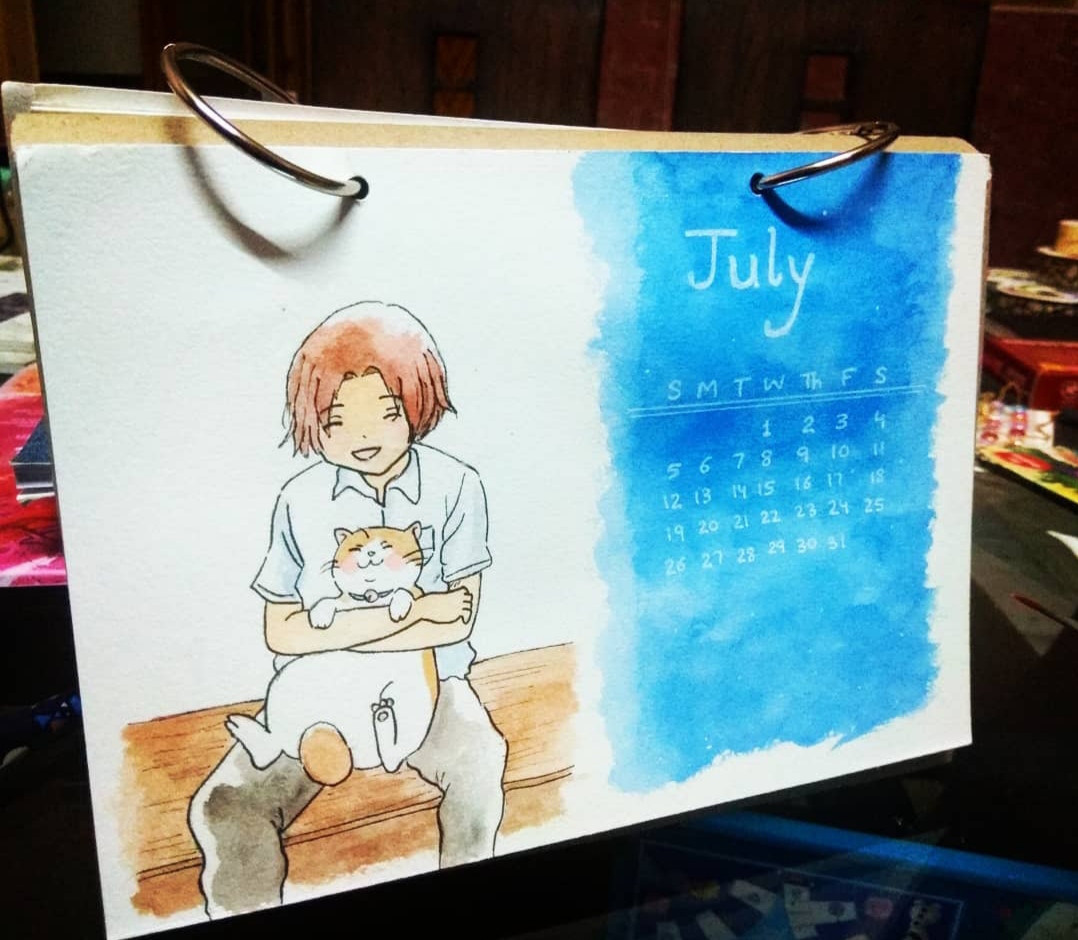 July
S M T W Th F S
1 2 3 4
5 6 7 8 9 10 11
12 13 14 15 16 17 18
19 20 21 22 23 24 25
26 27 28 29 30 31